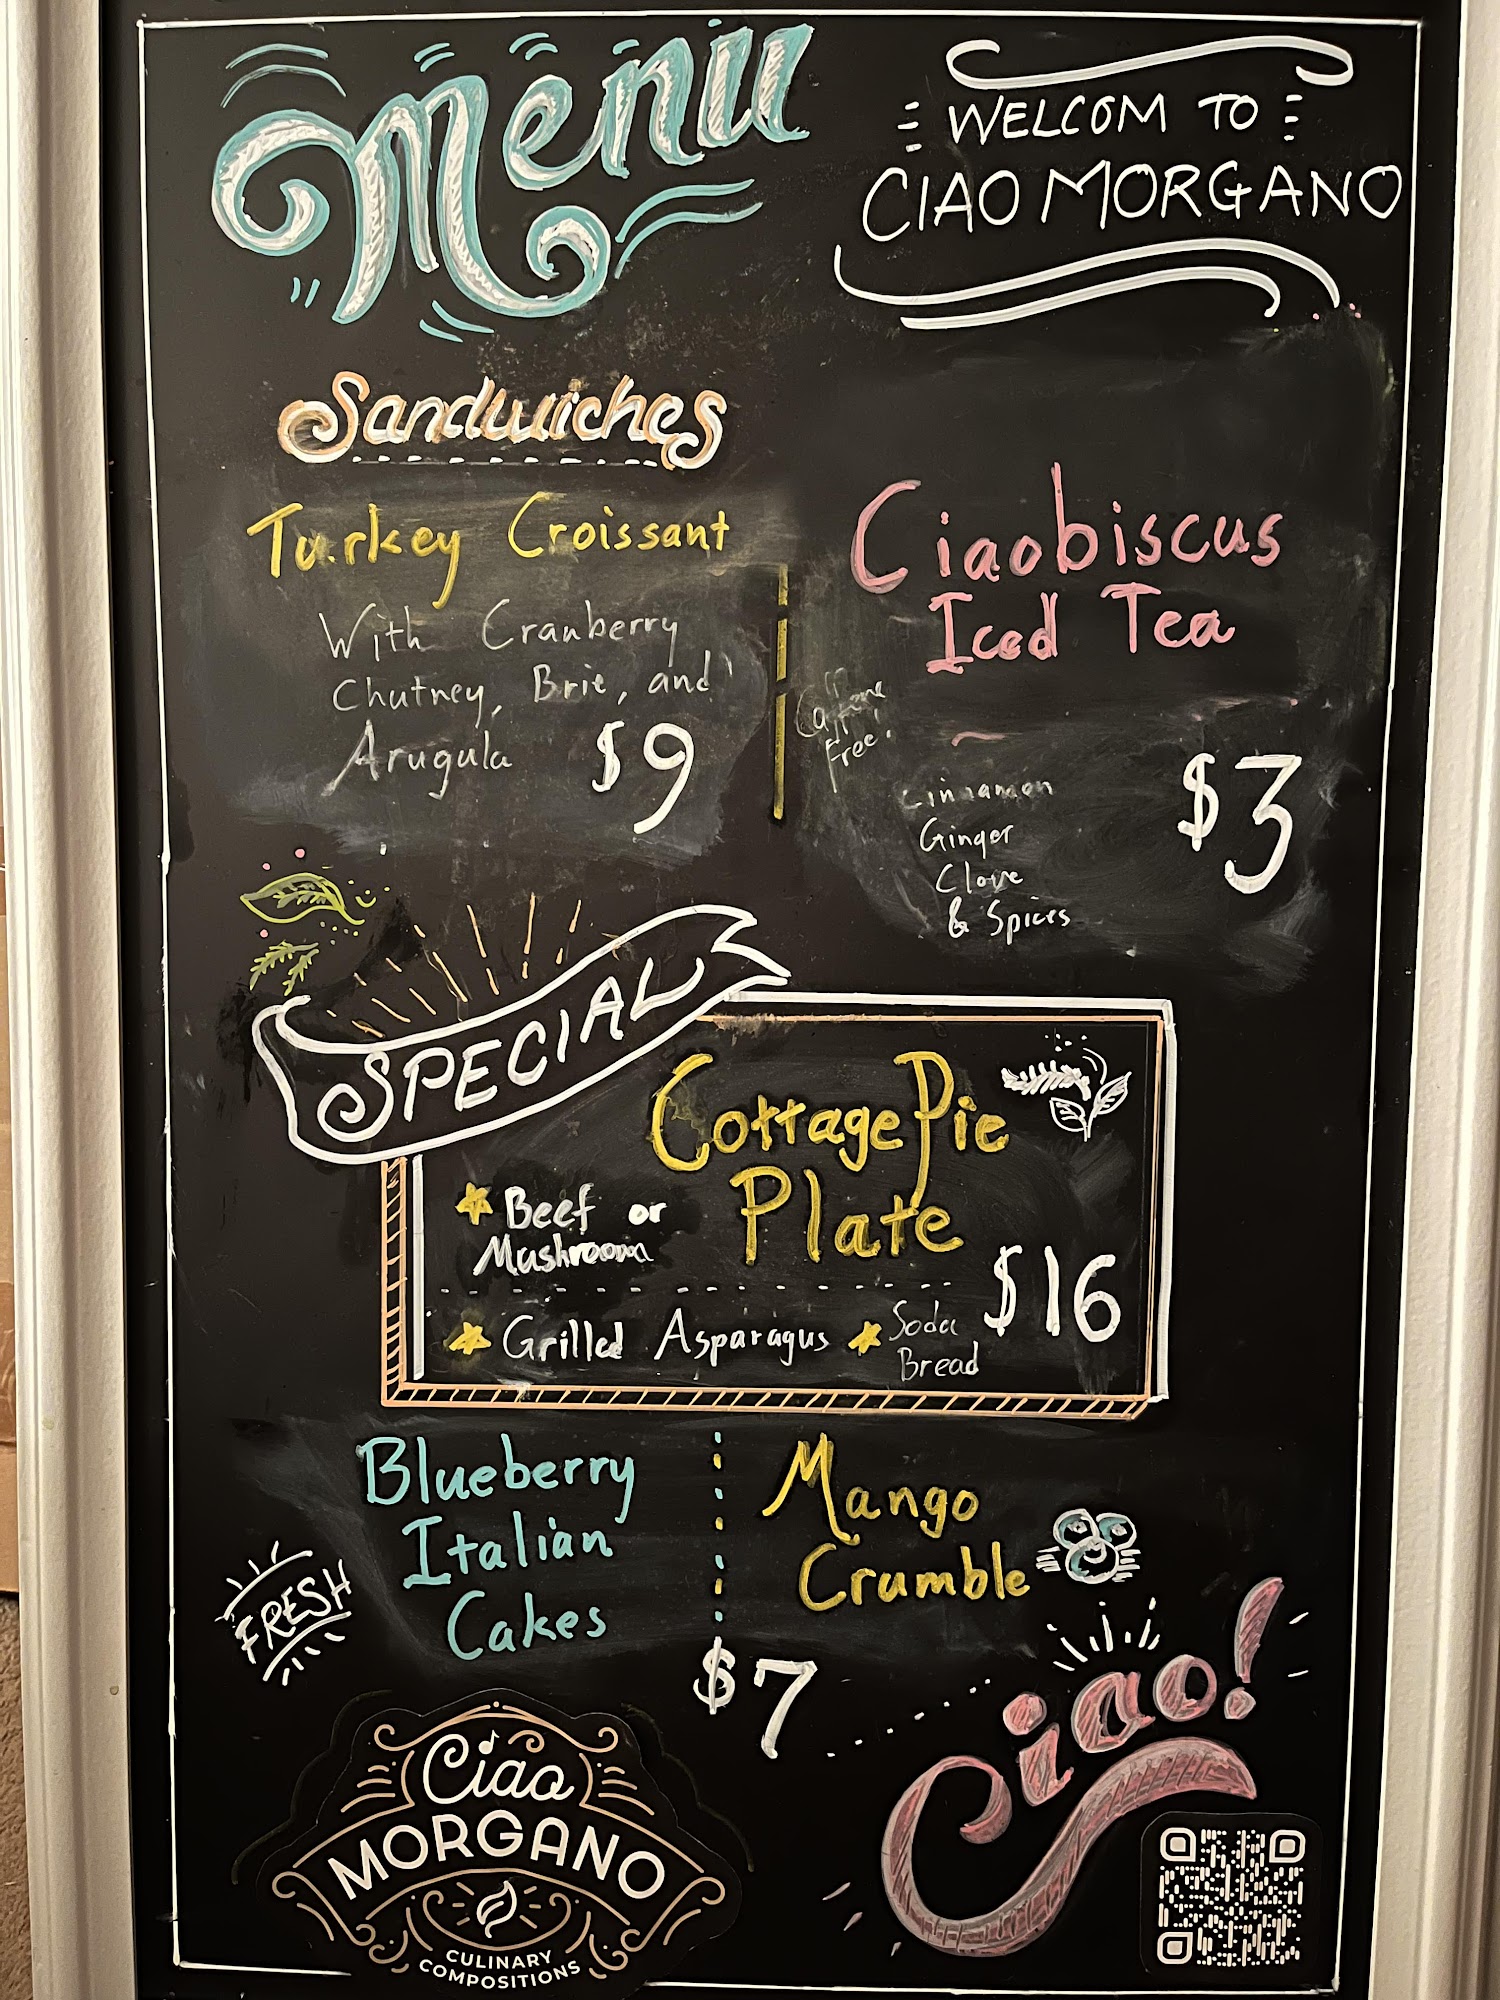 Menu
WELCOM TO
CIAO MORGANO
Sandwiches
Turkey Croissant
With Cranberry
Chutney, Brie, and
Arugula $9
Ciaobiscus
Iced Tea
Caffeine
Free!
Cinnamon
Ginger
Clove
& Spices
$3
SPECIAL
Cottage Pie
Plate
Beef or
Mushroom
$16
Grilled Asparagus
Soda
Bread
Blueberry
Italian
Cakes
Mango
Crumble
FRESH
$7
Ciao!
Ciao
MORGANO
CULINARY
COMPOSITIONS